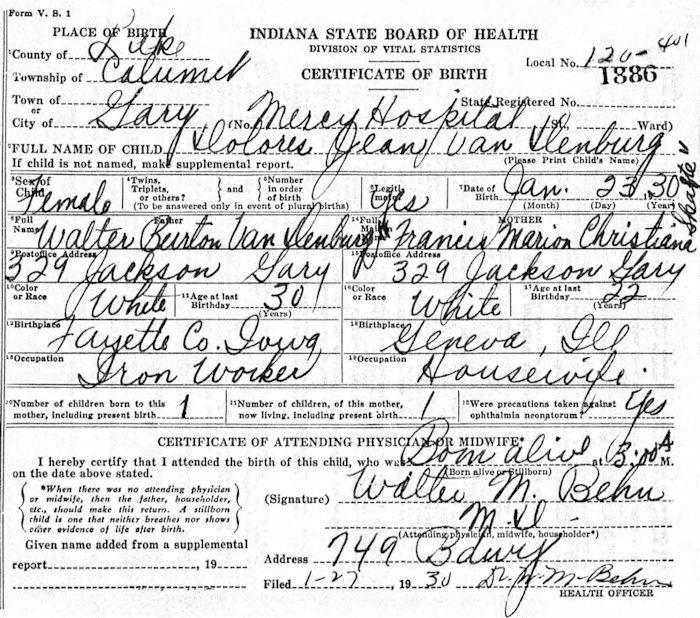 Form V. S. 1
PLACE OF BIRTH
INDIANA STATE BOARD OF HEALTH
DIVISION OF VITAL STATISTICS
County of Lake
Local No. 120-401
Township of Calumet
CERTIFICATE OF BIRTH
1886
Town of
or
State Registered No.
City of Gary (No. Mercy Hospital St., Ward)
2FULL NAME OF CHILD Dolores Jean Van Slenburg
If child is not named, make supplemental report. (Please Print Child's Name)
3Sex of Child Female
4Twins, Triplets, or others? } and { 5Number in order of birth
(To be answered only in event of plural births)
6Legitimate? Yes
7Date of Birth Jan. 23, 30
(Month) (Day) (Year)
8Full Name Father Walter Burton Van Slenburg
14Full Maiden Name MOTHER Francis Marion Christiana
9Postoffice Address 329 Jackson Gary
15Postoffice Address 329 Jackson Gary
10Color or Race White 11Age at last Birthday 30 (Years)
16Color or Race White 17Age at last Birthday 22 (Years)
12Birthplace Fayette Co. Iowa
18Birthplace Geneva, Ill
13Occupation Iron Worker
19Occupation Housewife.
20Number of children born to this mother, including present birth 1
21Number of children, of this mother, now living, including present birth 1
22Were precautions taken against ophthalmia neonatorum? Yes
CERTIFICATE OF ATTENDING PHYSICIAN OR MIDWIFE*
I hereby certify that I attended the birth of this child, who was Born alive at 3:00 A M.
on the date above stated. (Born alive or Stillborn)
{ *When there was no attending physician or midwife, then the father, householder, etc., should make this return. A stillborn child is one that neither breathes nor shows other evidence of life after birth. }
(Signature) Walter M. Behn
M.D.
(Attending physician, midwife, householder*)
Given name added from a supplemental
report, 19
Address 749 Bdwy
Filed 1-27, 1930 Dr. W. M. Behn
HEALTH OFFICER